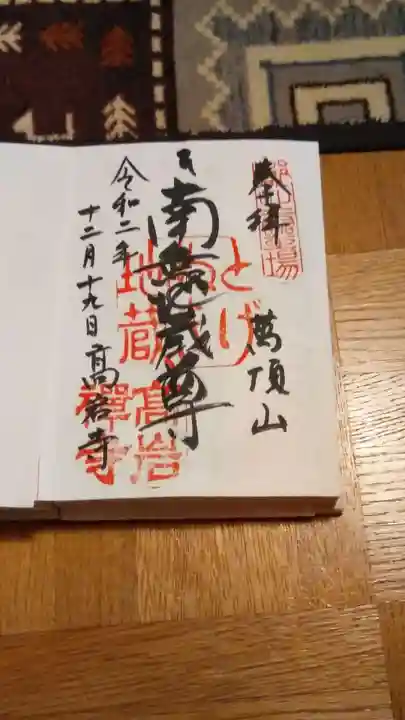 奉拝
萬頂山
南無地蔵尊
令和二年
十二月十九日
高岩寺
霊場
とげぬき
地蔵
高岩
禅寺